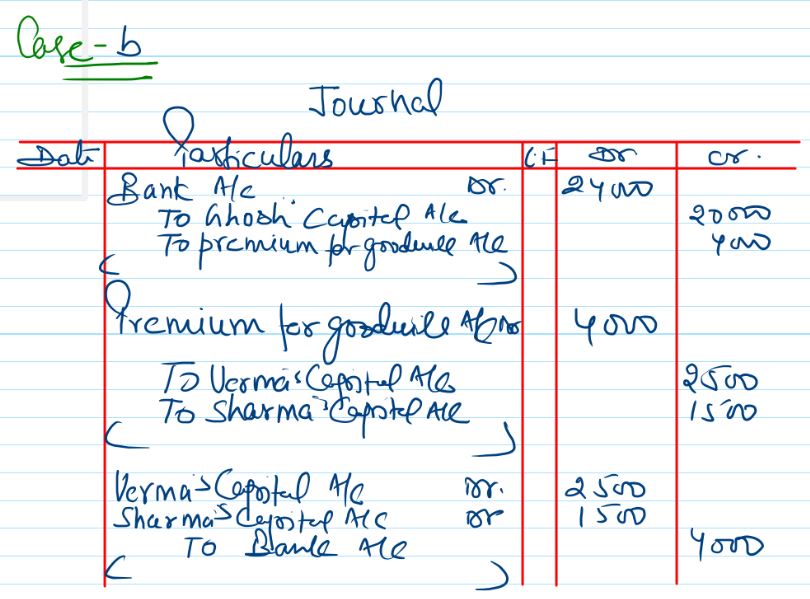 Case - b
Journal
Date Particulars LF Dr Cr.
Bank A/c Dr. 24000
To Ghosh Capital A/c 20000
To premium for goodwill A/c 4000
( )
Premium for goodwill A/c Dr 4000
To Verma's Capital A/c 2500
To Sharma's Capital A/c 1500
( )
Verma's Capital A/c Dr. 2500
Sharma's Capital A/c Dr 1500
To Bank A/c 4000
( )